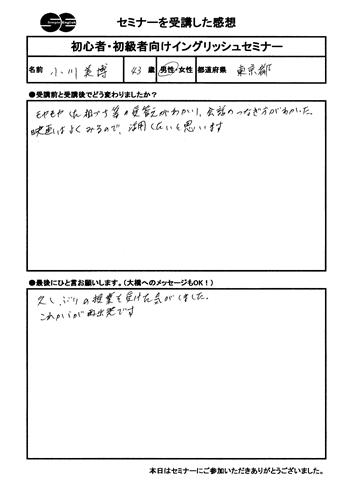 セミナーを受講した感想
初心者・初級者向けイングリッシュセミナー
名前 小川 英博 43 歳 男性・女性 都道府県 東京都
●受講前と受講後でどう変わりましたか？
等の受答えがわかり、会話のつなぎ方がわかった。
映画はよくみるので、活用したいと思います
●最後にひと言お願いします。（大橋へのメッセージもOK！）
久しぶりの授業を受けた気がしました。
これからが再出発です
本日はセミナーにご参加いただきありがとうございました。